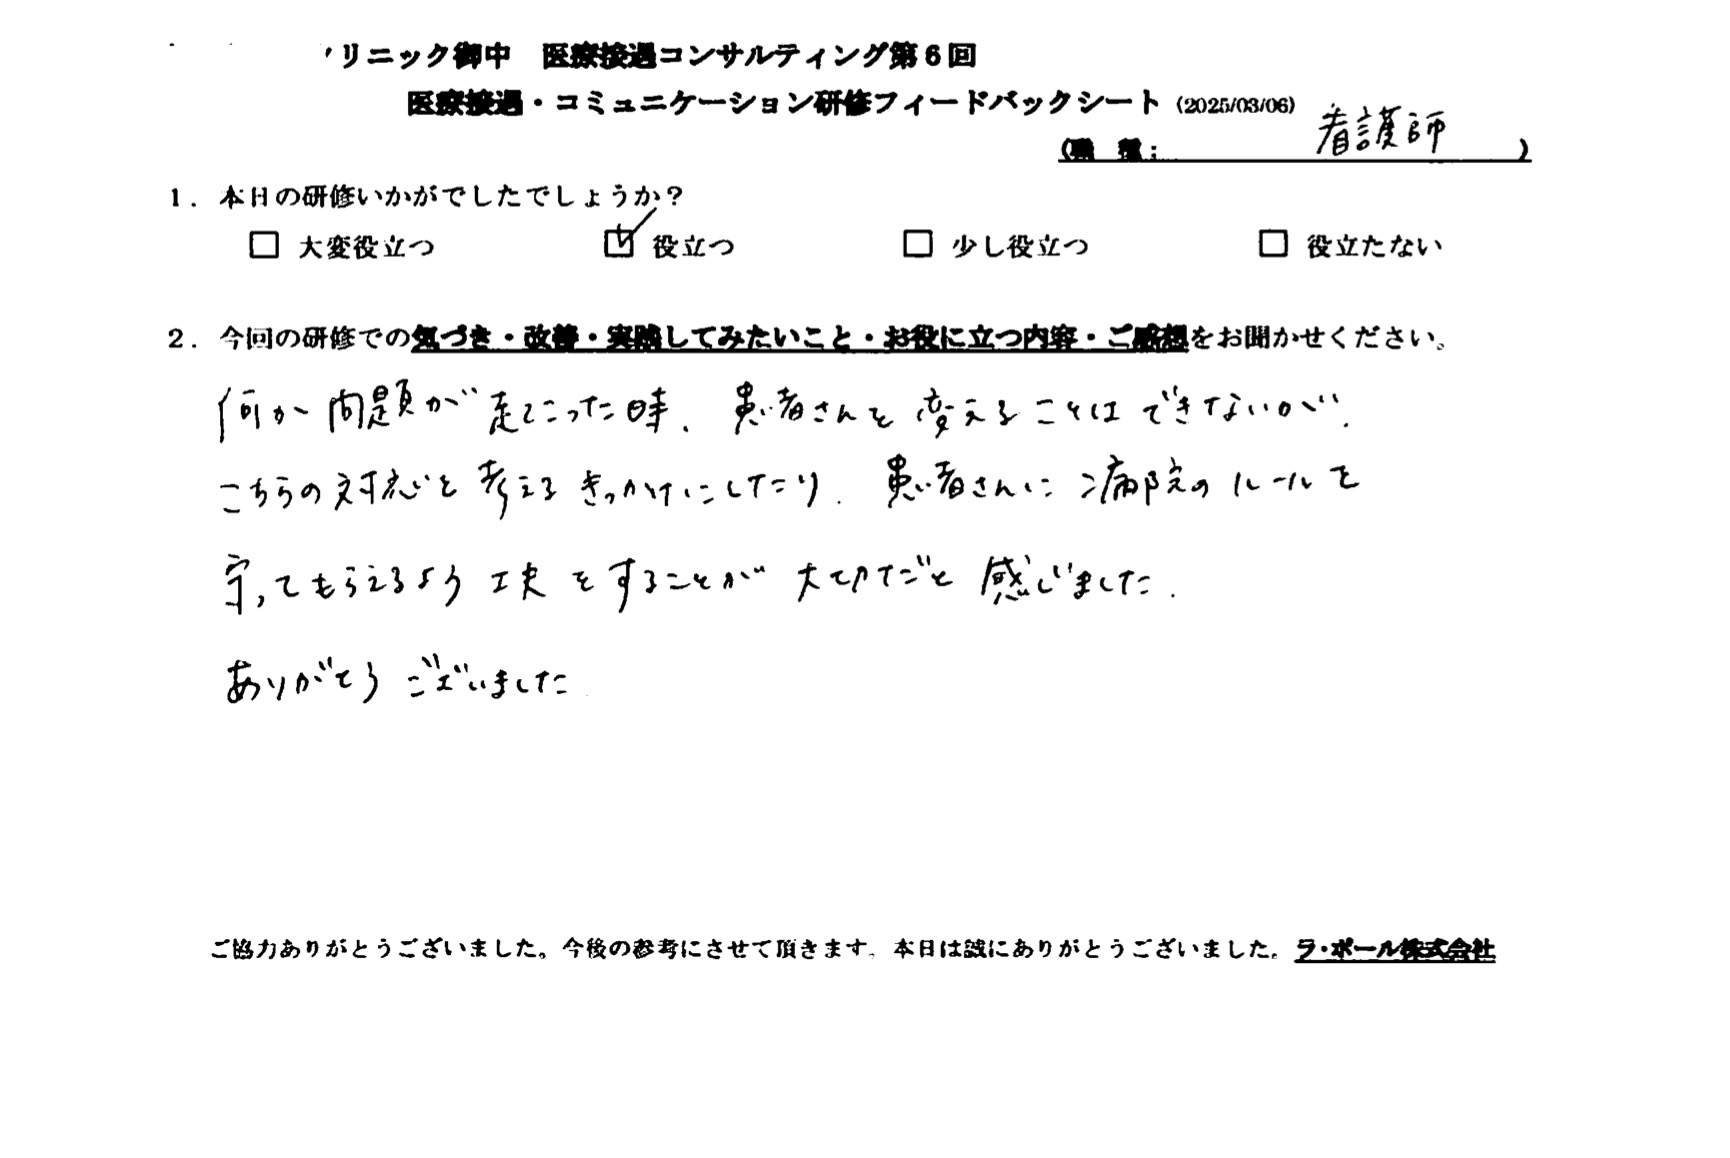 リニック御中 医療接遇コンサルティング第6回
医療接遇・コミュニケーション研修フィードバックシート (2025/03/06)
(職 種: 看護師 )
1. 本日の研修いかがでしたでしょうか?
□ 大変役立つ ☑ 役立つ □ 少し役立つ □ 役立たない
2. 今回の研修での気づき・改善・実践してみたいこと・お役に立つ内容・ご感想をお聞かせください。
何か問題が起こった時、患者さんを変えることはできないが、
こちらの対応を考えるきっかけにしたり、患者さんに病院のルールを
守ってもらえるよう工夫をすることが大切だと感じました.
ありがとうございました
ご協力ありがとうございました。今後の参考にさせて頂きます。本日は誠にありがとうございました。ラ・ポール株式会社